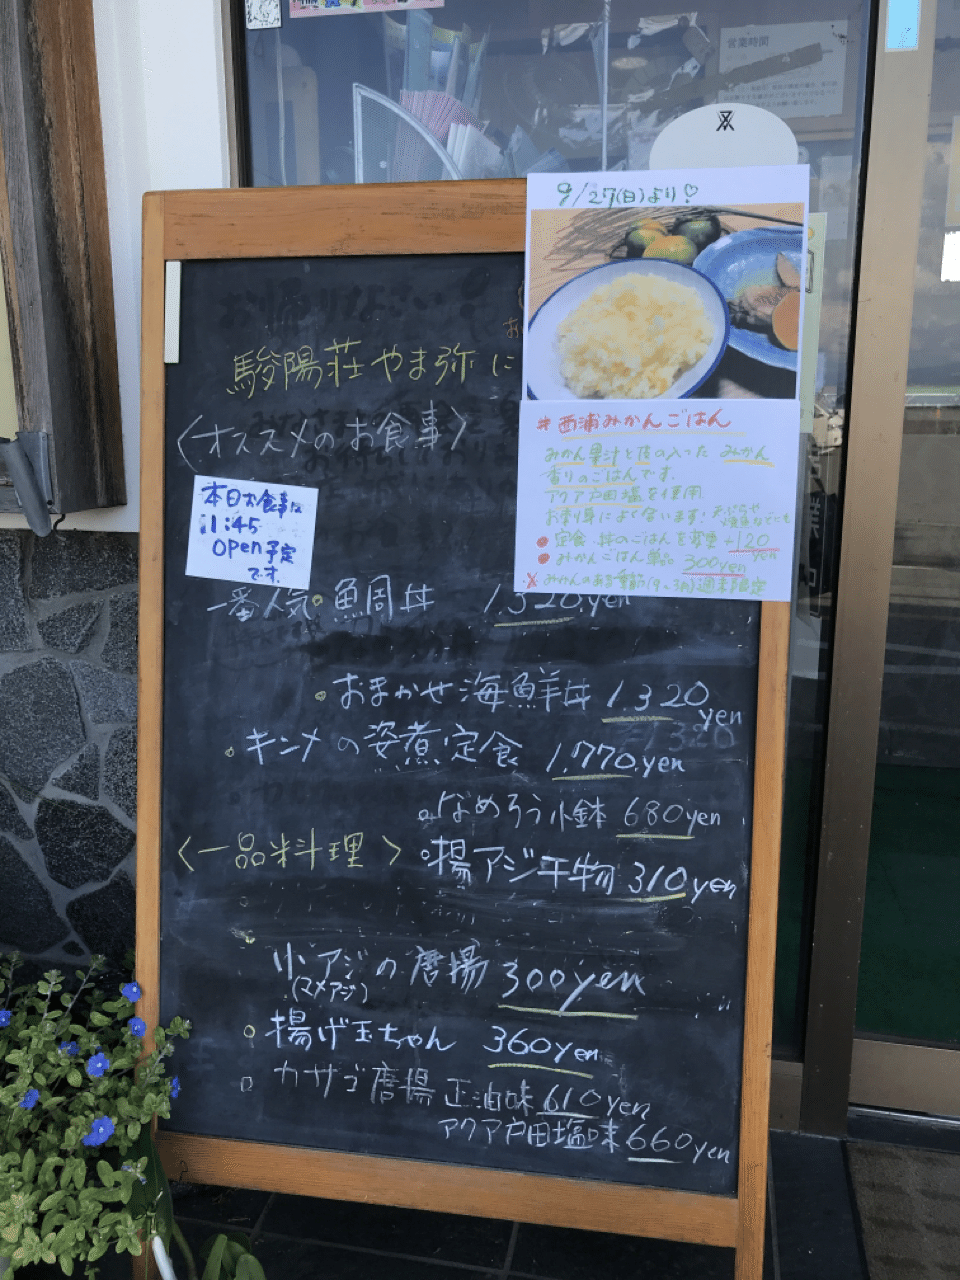 営業時間
9/27(日)より♡
駿陽荘やま弥に
〈オススメのお食事〉
#西浦みかんごはん
みかん果汁と皮の入ったみかん
香りのごはんです。
アクア戸田塩を使用
お刺身によく合います!
●定食、丼のごはんを変更 +120yen
●みかんごはん単品 300yen
本日お食事は
11:45
open予定
です。
一番人気・魚周丼 1.320.yen
・おまかせ海鮮丼 1.320yen
・キンメの姿煮定食 1.770.yen
・なめろう小鉢 680yen
〈一品料理〉・揚アジ干物 310yen
小アジの唐揚 300yen
(マメアジ)
・揚げ玉ちゃん 360yen
カサゴ唐揚 正油味 610yen
アクア戸田塩味 660yen